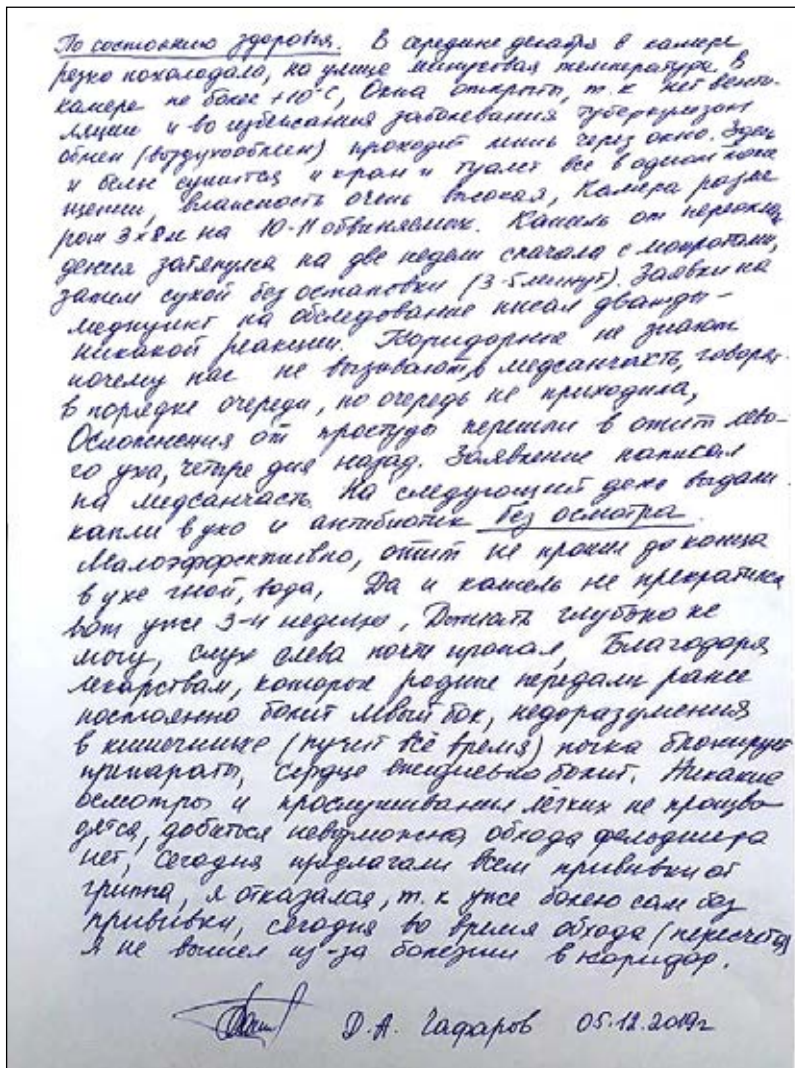 По состоянию здоровья. В середине декабря в камере
резко похолодало, на улице минусовая температура. В
камере не более +10°С, Окна открыты, т.к нет венти-
ляции и во избежания заболевания туберкулезом
обмен (воздухообмен) проходит лишь через окно. Здесь
и белье сушится и кран и туалет все в одном поме
щении, влажность очень высокая, Камера разме
ром 3х8м на 10-11 обвиняемых. Кашель от переохлаж
дения затянулся на две недели сначала с мокротами,
затем сухой без остановки (3-5 минут). Заявки на
медпункт на обследование писал дважды -
никакой реакции. Коридорные не знают
почему нас не вызывают в медсанчасть, говорят
в порядке очереди, но очередь не приходила,
Осложнения от простуды перешли в отит лево-
го уха, четыре дня назад. Заявление написал
на медсанчасть. На следующий день выдали
капли в ухо и антибиотик без осмотра.
Малоэффективно, отит не прошел до конца
в ухе гной, вода, Да и кашель не прекратился
вот уже 3-и неделю, Дышать глубоко не
могу, слух слева почти пропал, Благодаря
лекарствам, которые родные передали ранее
постоянно болит левый бок, недоразумения
в кишечнике (пучит всё время) почка блокирует
препараты, сердце ежедневно болит. Никакие
осмотры и прослушивания лёгких не произво-
дятся, добиться невозможно обхода фельдшера
нет, Сегодня предлагали всем прививки от
гриппа, я отказался, т.к уже болею сам без
прививки, сегодня во время обхода (пересчета)
я не вышел из-за болезни в коридор.
Д.А. Гафаров 05.12.2019г